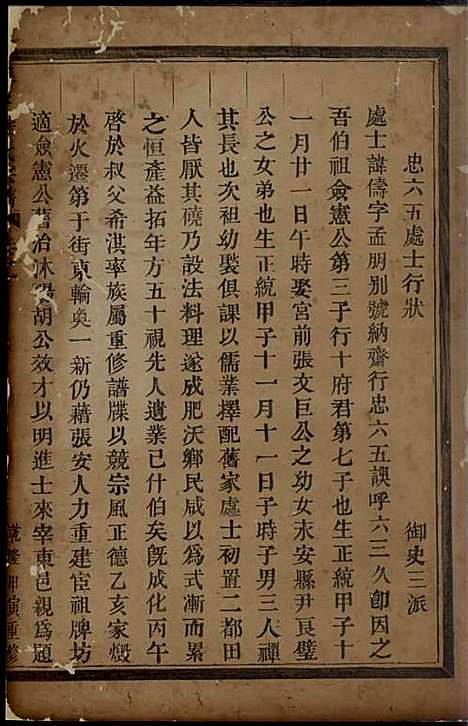 忠六五處士行狀 御史三派
處士諱儔字孟朋別號納齋行忠六五誤呼六三久卽因之
吾伯祖僉憲公第三子行十府君第七子也生正統甲子十
一月廿一日午時娶宮前張文巨公之幼女永安縣尹良璧
公之女弟也生正統甲子十一月十一日子時子男三人禪
其長也次祖幼褧俱課以儒業擇配舊家處士初置二都田
人皆厭其磽乃設法料理遂成肥沃鄉民咸以為式漸而累
之恒產益拓年方五十視先人遺業已什伯矣旣成化丙午
啓於叔父希淇率族屬重修譜牒以競宗風正德乙亥家燬
於火遷第于街東輪奐一新仍藉張安人力重建宦祖牌坊
適僉憲公舊治休 胡公效才以明進士來宰東邑親為題
乾隆甲 重修